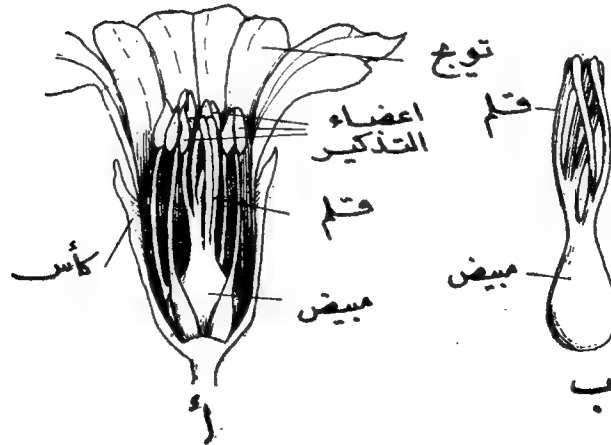 توبج
اعضاء
التذكير
قلم
مبيض
كأس
أ
قلم
مبيض
ب